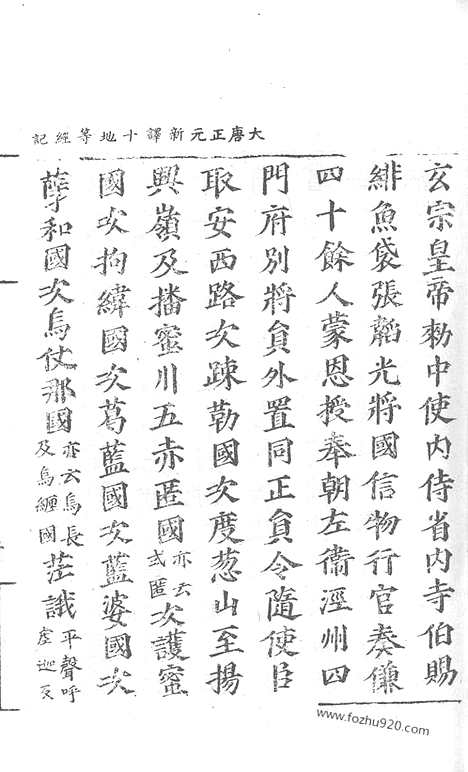 大唐正元新譯十地等經記
玄宗皇帝勑中使內侍省內寺伯賜
緋魚袋張韜光將國信物行官奏傔
四十餘人蒙恩授奉朝左衞涇州四
門府別將貟外置同正貟令隨使臣
取安西路次踈勒國次度葱山至揚
興嶺及播蜜川五赤匿國亦云式匿次護蜜
國次拘緯國次葛藍國次藍婆國次
孽和國次烏仗那國亦云烏長及烏纏國茫誐平聲呼虐迦反
www.fozhu920.com